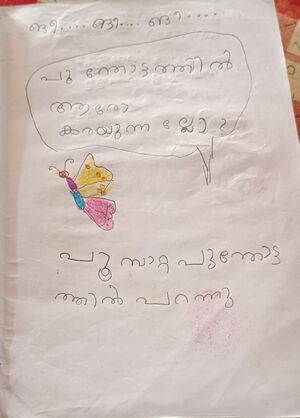 ങീ.... ങീ... ങീ.....
പൂ ന്തോട്ടത്തിൽ
ആരോ
കരയുന്ന ല്ലോ
പൂമ്പാറ്റ പൂന്തോട്ട
ത്തിൽ പറന്നു